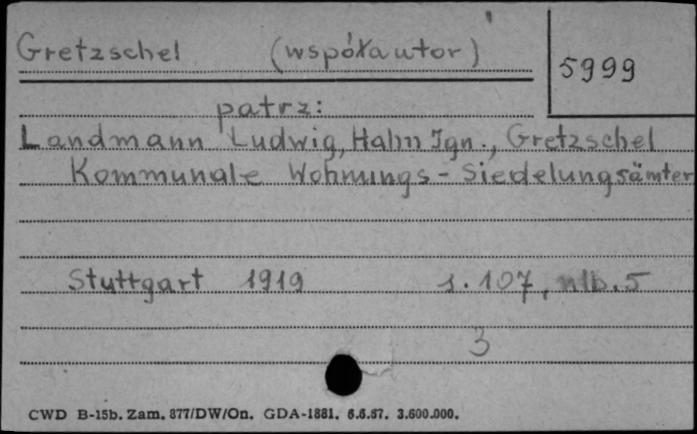 Gretzschel (współautor)
5999
patrz:
Landmann Ludwig, Hahn Ign., Gretzschel
Kommunale Wohnungs-Siedelungsämter
Stuttgart 1919 s. 107, nlb. 5
3
CWD B-15b. Zam. 877/DW/On. GDA-1881. 6.6.67. 3.600.000.